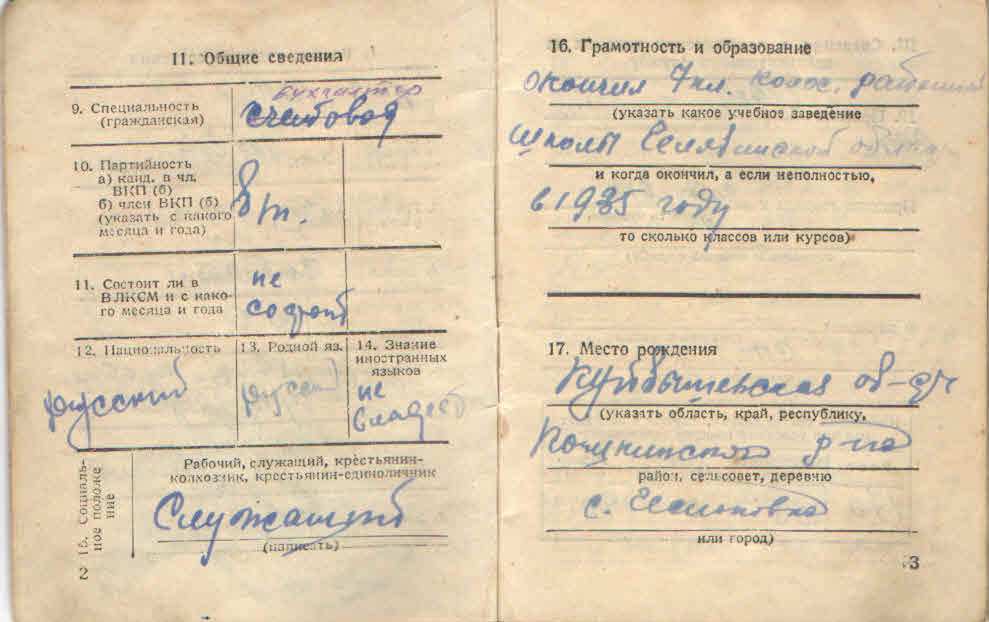 II. Общие сведения
9. Специальность
(гражданская)
бухгалтер
счетовод
10. Партийность
а) канд. в чл.
ВКП (б)
б) член ВКП (б)
(указать с какого
месяца и года)
б/п.
11. Состоит ли в
ВЛКСМ и с како-
го месяца и года
не
состоит
12. Национальность
русский
13. Родной яз.
русский
14. Знание
иностранных
языков
не
владеет
15. Социаль-
ное положе-
ние
Рабочий, служащий, крестьянин-
колхозник, крестьянин-единоличник
Служащий
(написать)
2
16. Грамотность и образование
окончил 7 кл.
(указать какое учебное заведение
школы Челябинской области
и когда окончил, а если неполностью,
в 1935 году
то сколько классов или курсов)
17. Место рождения
Куйбышевская об-сть
(указать область, край, республику,
р-на
район, сельсовет, деревню
с.
или город)
3